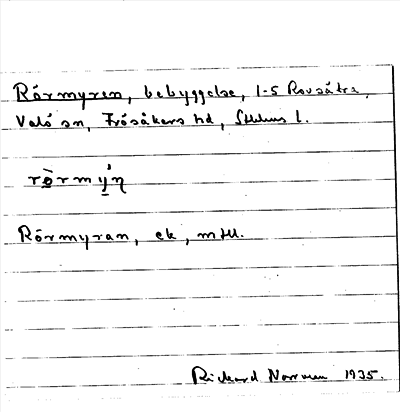 Rörmyren, bebyggelse, 1-5 Rovsätra,
Valö sn, Frösåkers hd, Sthlms l.
rö̀rmy̍ṇ
Rörmyran, ek, mtll.
Rickard Norrman 1935.